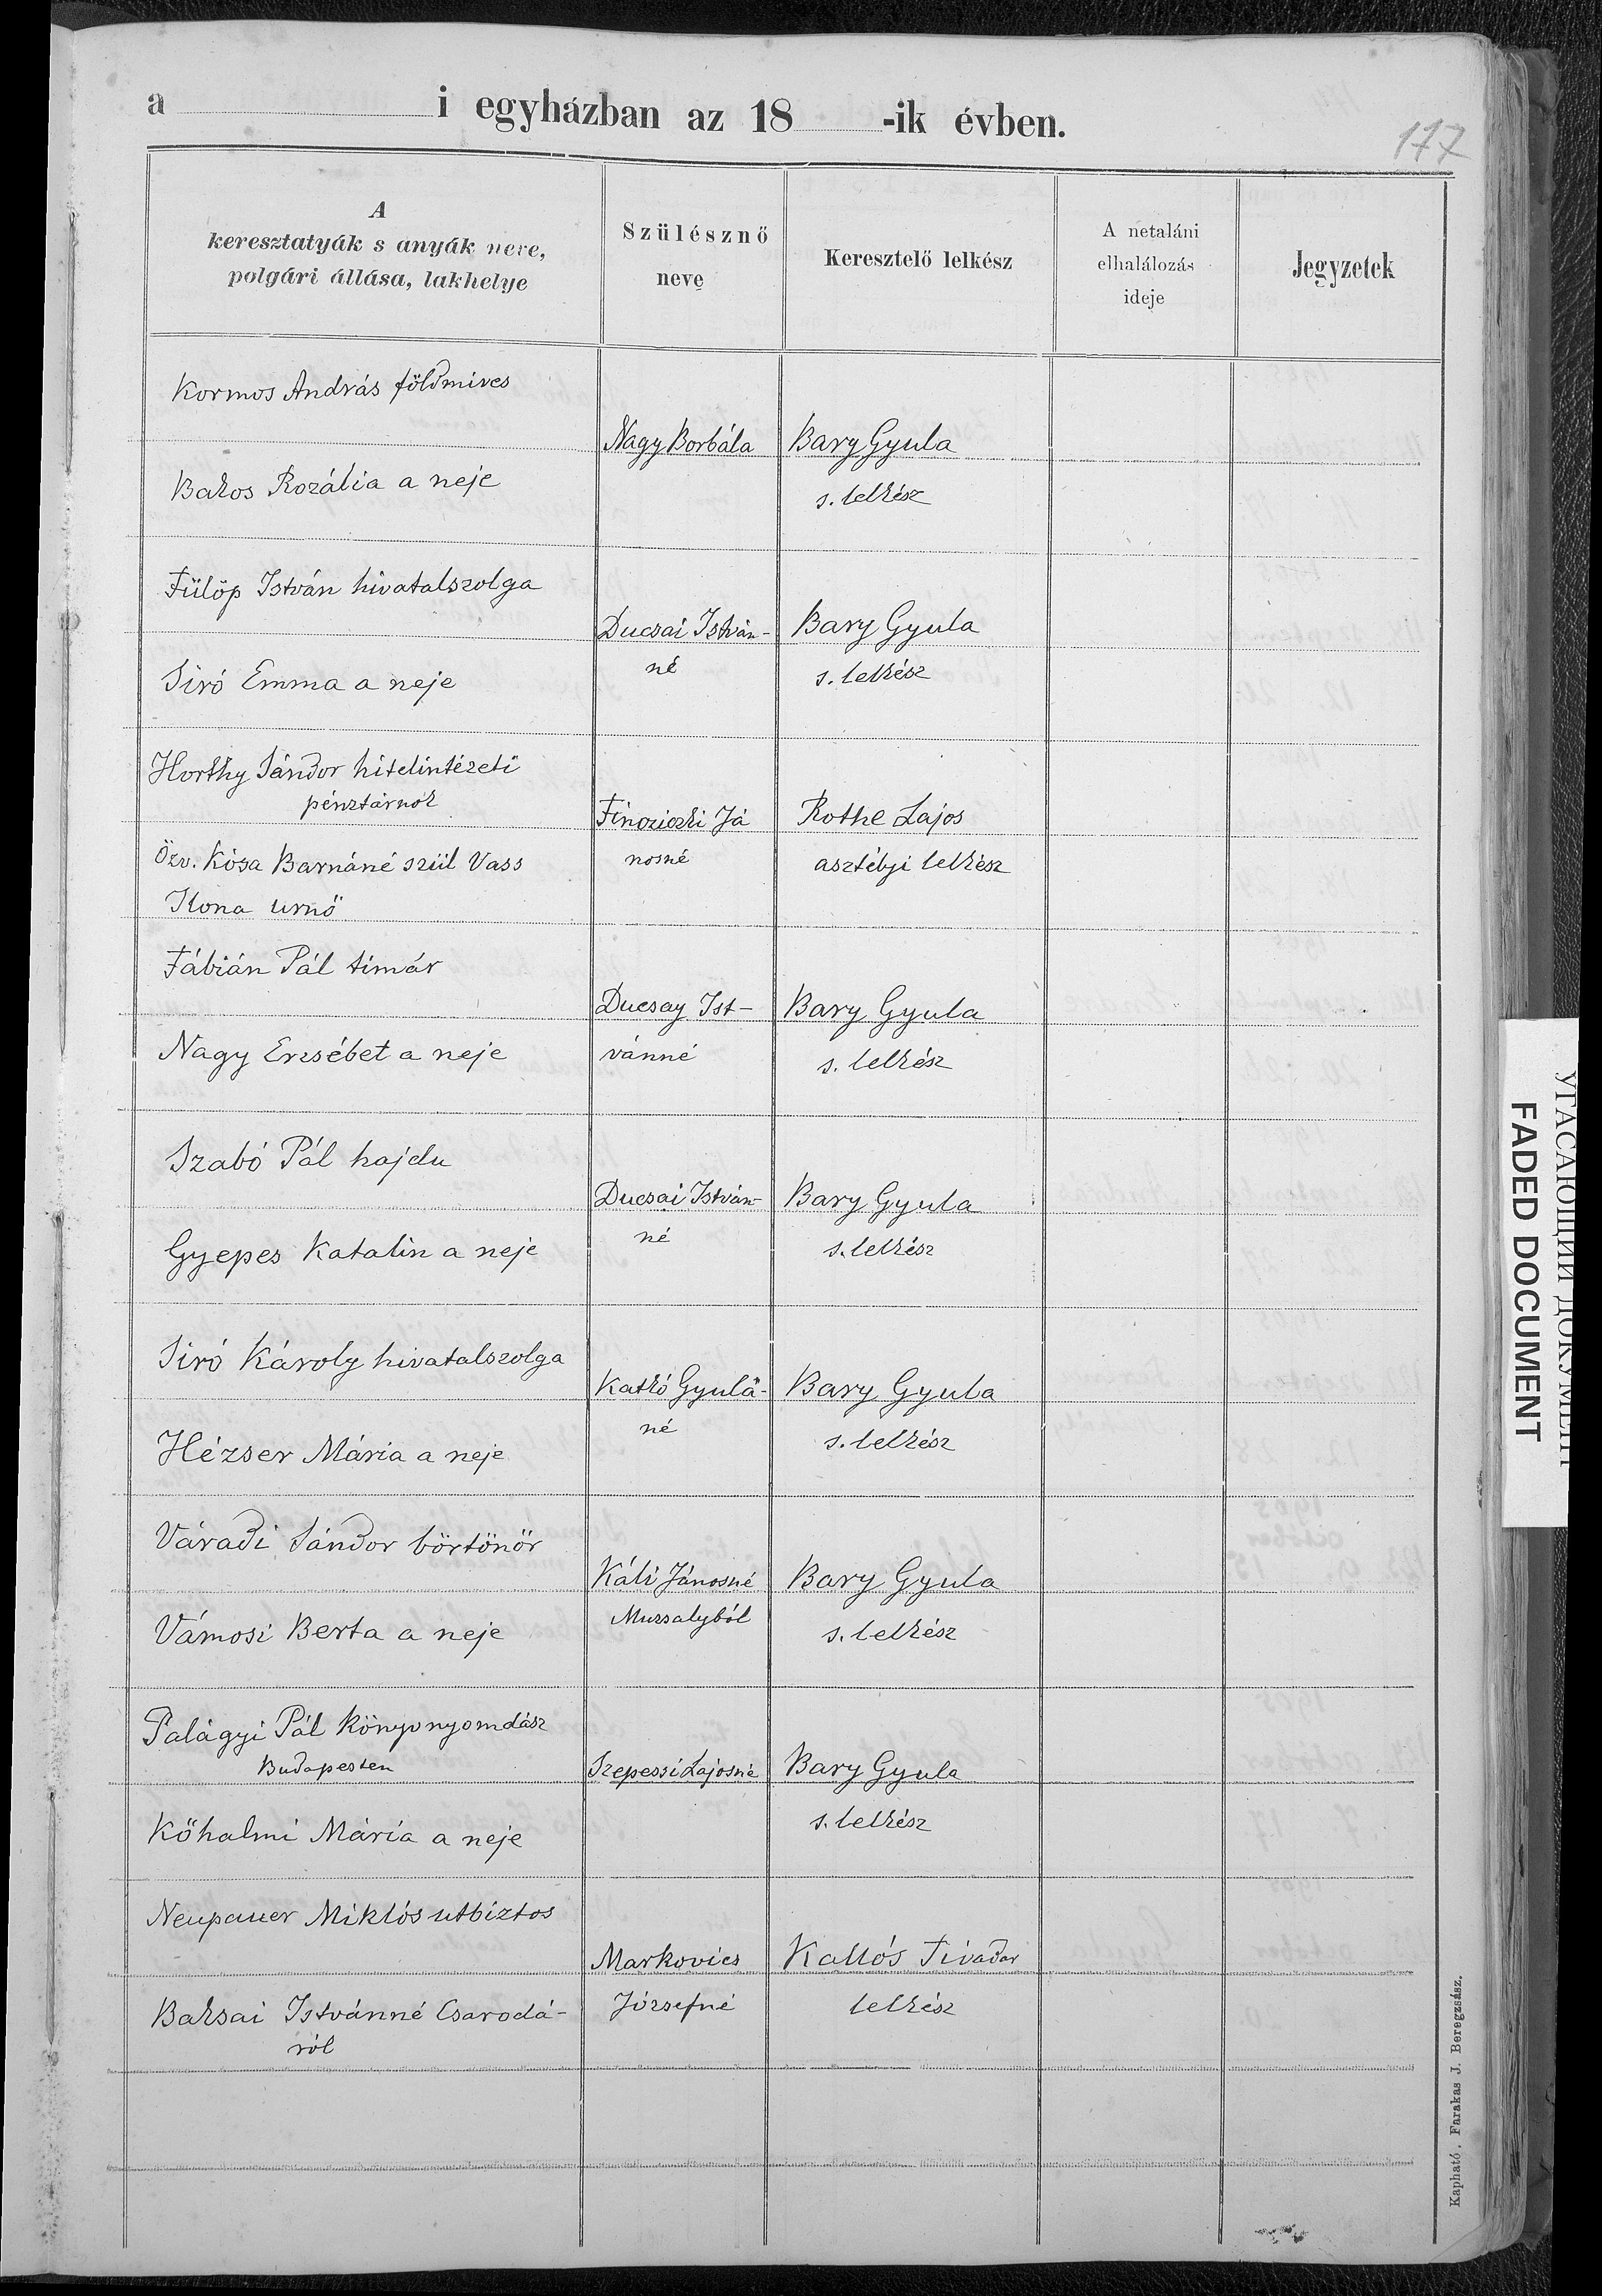 a i egyházban az 18 -ik évben.
177
A
keresztatyák s anyák neve,
polgári állása, lakhelye
Szülésznő
neve
Keresztelő lelkész
A netaláni
elhalálozás
ideje
Jegyzetek
Kormos András földmives
Nagy Borbála
Bary Gyula
Bakos Rozália a neje
s. lelkész
Fülöp István hivatalszolga
Ducsai István-
Bary Gyula
né
s. lelkész
Siró Emma a neje
Horthy Sándor hitelintézeti
pénztárnok
Já
Rothe Lajos
Özv. Kósa Barnáné szül Vass
nosné
lelkész
Ilona urnő
Fábián Pál timár
Ducsay Ist-
Bary Gyula
Nagy Erzsébet a neje
vánné
s. lelkész
Szabó Pál hajdu
Ducsai István-
Bary Gyula
Gyepes Katalin a neje
né
s. lelkész
Siró Károly hivatalszolga
Katkó Gyulá-
Bary Gyula
né
s. lelkész
Hézser Mária a neje
Váradi Sándor börtönőr
Káli Jánosné
Bary Gyula
Muzsalyból
Vámosi Berta a neje
s. lelkész
Palágyi Pál könyvnyomdász
Budapesten
Szepessi Lajosné
Bary Gyula
Kőhalmi Mária a neje
s. lelkész
Neupauer Miklós utbiztos
Markovics
Kallós Tivadar
Baksai Istvánné Csarodá-
Józsefné
lelkész
ról
Kapható. Farakas J. Beregzsász.
УГАСАЮЩИЙ ДОКУМЕНТ
FADED DOCUMENT